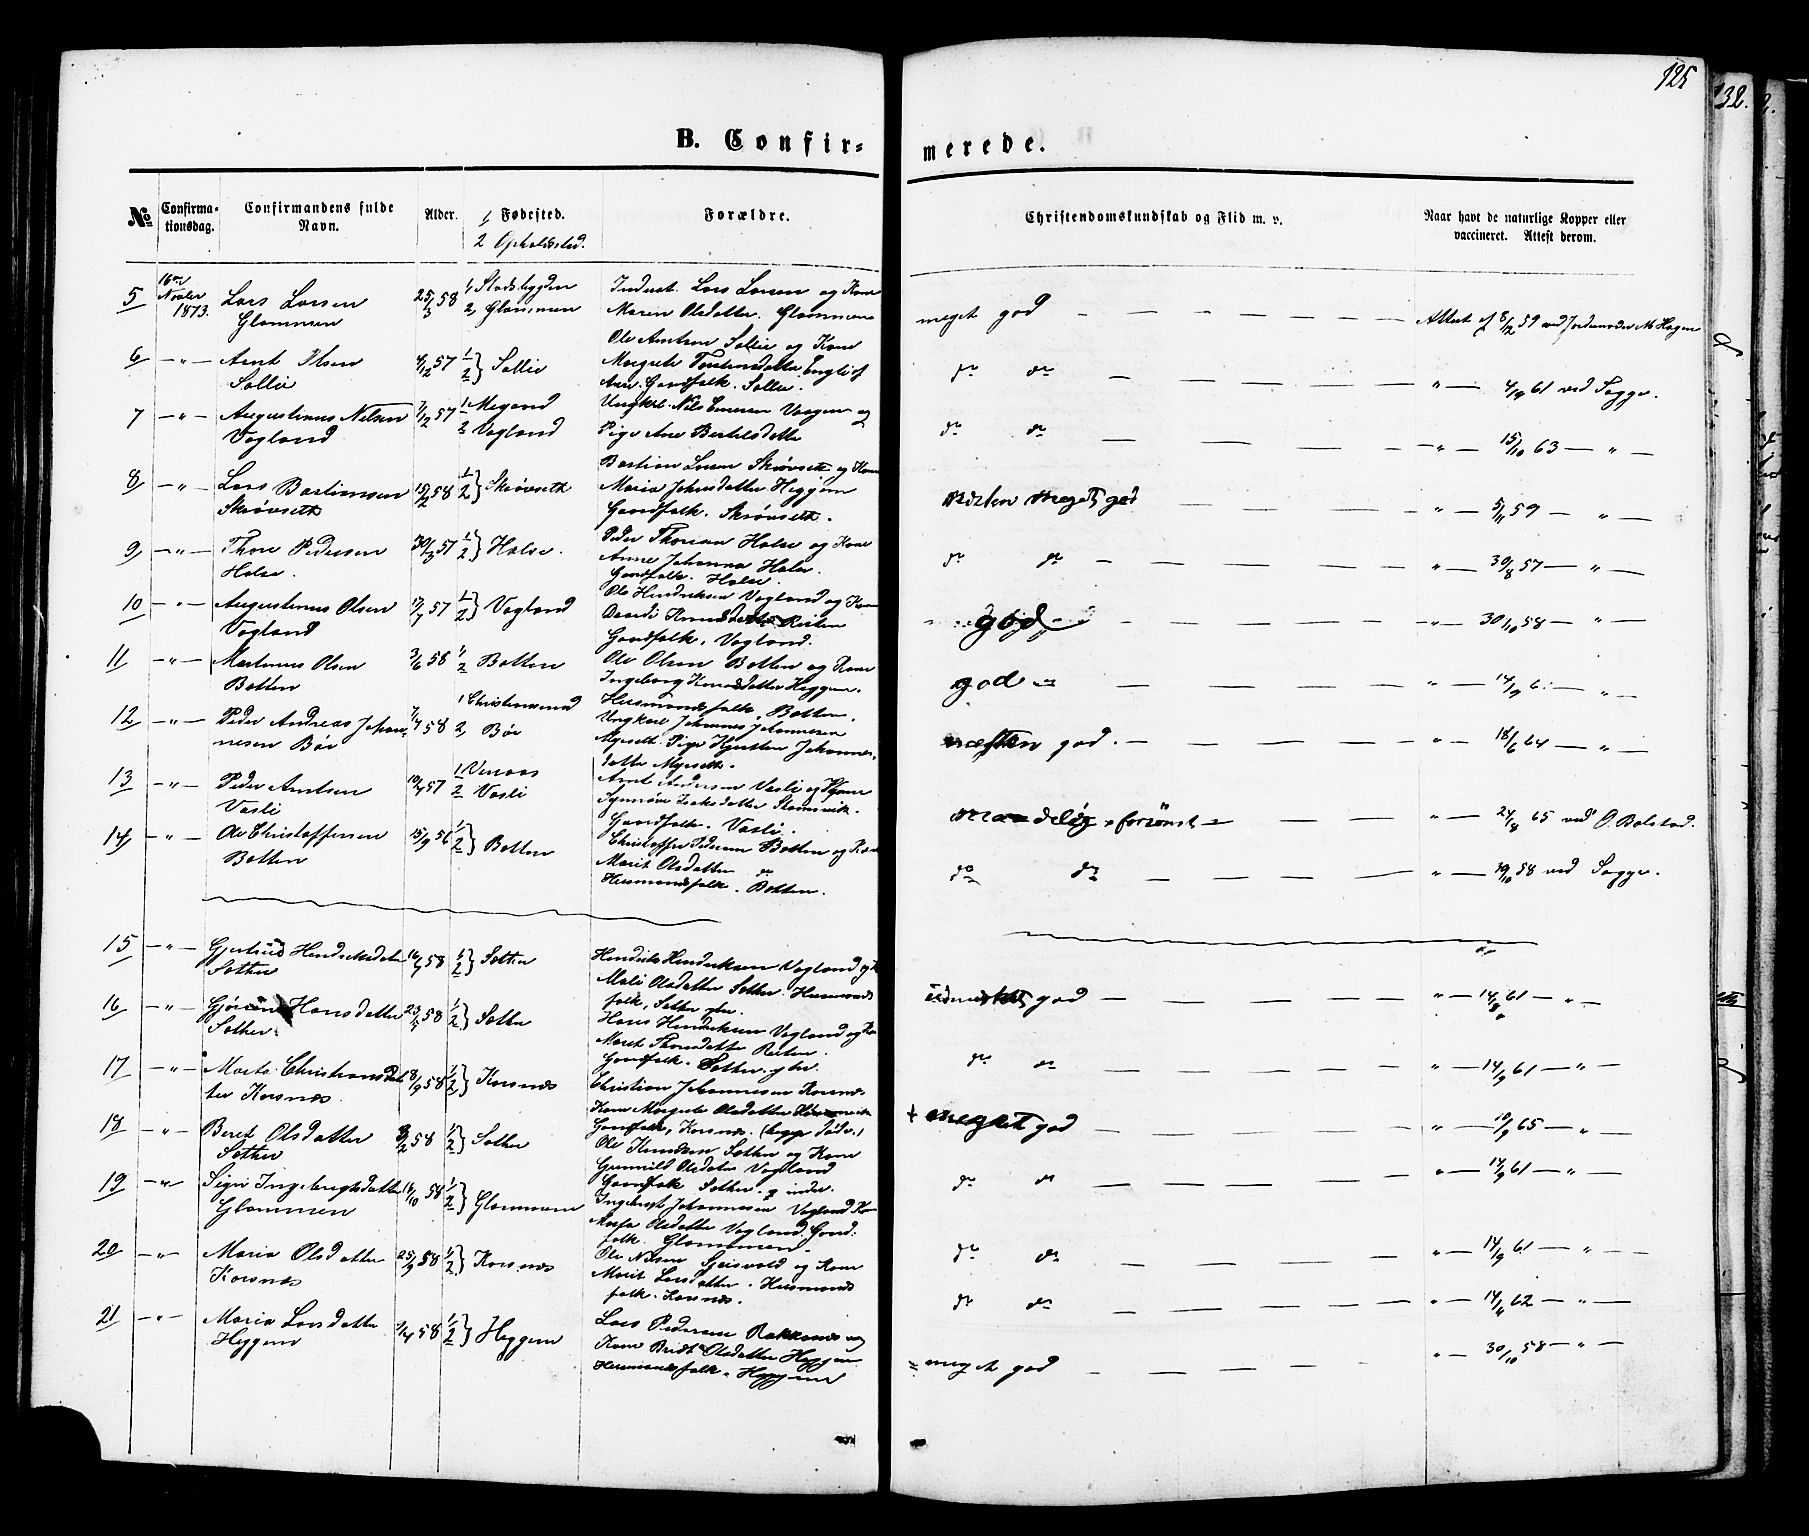 125
132.
B. Confir-
merede.
No
Confirma-
tionsdag.
Confirmandens fulde
Navn.
Alder.
1/ Fødested.
2 Opholdssted.
Forældre.
Christendomskundskab og Flid m. v.
Naar havt de naturlige Kopper eller
vaccineret. Attest derom.
5 16de Novber 1873. Lars Larsen
Glommen
25/3 58
1/ Stadsbygden
2, Glommen
Inderst. Lars Larsen og Kone
Maren Olsdatter. Glommen
meget god
Attest af 8/2 59 ved Jordemoder M. Hagen
6 — " — Arnt Olsen
Sollie
4/12 57 1/2 } Sollie
Ole Arntsen Sollie og Kone
Margrete
Gaardfolk. Sollie.
do do
" — 4/9 61 ved Sogge.
7 — " — Augustinus Nilsen
Vogland
7/12 57
1 Megard
2 Vogland
Ungkrl. Nils Vaagen og
Pige Ane Bertelsdatter
do do
" — 15/10 63 — " —
8 — " — Lars Bastiansen
Skrøvseth
58 1/2 } Skrøvseth
Bastian Larsen Skrøvseth og Kone
Maria Johnsdatter Heggem
Gaardfolk. Skrøvseth.
næsten meget god
" — 5/11 59 — " —
9 — " — Thore Pedersen
Halse.
30/3 57 1/2 } Halse.
Peder Thoresen Halse og Kone
Anne Johanna Halse.
Gaardfolk. Halse.
do do
" — 30/8 57 — " —
10 — " — Augustinus Olsen
Vogland
57 1/2 } Vogland
Ole Hendriksen Vogland og Kone
Knudsdatter Reiten
Gaardfolk. Vogland.
god
" — 30/10 58 — " —
11 — " — Martinus Olsen
Botten
3/6 58 1/2 Botten
Ole Olsen Botten og Kone
Ingeborg Knudsdatter Heggem.
Husmandsfolk, Botten.
god
" — 14/9 — " —
12 — " — Peder Andreas Johan-
nesen Bør
7/7 58
1 Christiansund
2, Bør
Ungkarl Johannes Johannesen
Myrseth. Pige Johannes-
datter Myrseth.
næsten god.
" — 18/6 64 — " —
13 — " — Peder Arntsen
Vasli
10/4 57
1
2 Vasli
Arnt Andersen Vasli og Kone
Synnøve Isaksdatter
Gaardfolk. Vasli.
maadelig
" — 24/8 65 ved O. Bolstad.
14 — " — Ole Christoffersen
Botten
15/9 56 1/2 } Botten
Christoffer Pedersen Botten og Kone
Marit Olsdatter do
Husmandsfolk. Botten.
do do
" — 58 ved Sogge.
15 — " — Gjertrud Hendriksdatter
Sæther
58 1/2 } Sæther
Hendrik Hendriksen Vogland og K
Mali Olsdatter Sæther. Husmands
folk, Sæther
udmerket god
" — 14/8 61 — " —
16 — " — Hansdatter
Sæther.
58 1/2 } Sæther
Hans Hendriksen Vogland og Ko
Maret Thoresdatter Reiten.
Gaardfolk. Sæther.
do do
" — 14/9 61 — " —
17 — " — Marta Christiansdat
ter Korsnæs.
18/9 58 1/2 } Korsnæs
Christian Johannesen Korsnæs
Kone Margrete Olsdatter
Gaardfolk, Korsnæs. (begge døde.)
+ meget god
" — 10/9 65 — " —
18 — " — Beret Olsdatter
Sæther
58 1/2 } Sæther
Ole Knudsen Sæther og Kone
Gunnild Olsdatter Vogland
Gaardfolk Sæther.
do do
" — 14/9 61 — " —
19 — " — Sigri Ingebrigtsdatter
Glommen
16/10 58 1/2 } Glommen
Ingebrigt Johannesen Vogland Ko
Marfa Olsdatter Vogland. Gaard-
folk. Glommen.
do do
" — 14/9 61 — " —
20 — " — Maria Olsdatter
Korsnæs
25/9 58 1/2 } Korsnæs
Ole Nilsen Geisvold og Kone
Marit Larsdatter. Husmands
folk. Korsnæs.
do do
" — 14/11 62 — " —
21 — " — Maria Larsdatter
Heggem
58 1/2 } Heggem
Lars Pedersen og
Kone Berit Olsdatter Heggem
Husmandsfolk. Heggem
meget god
" — 30/10 58 — " —